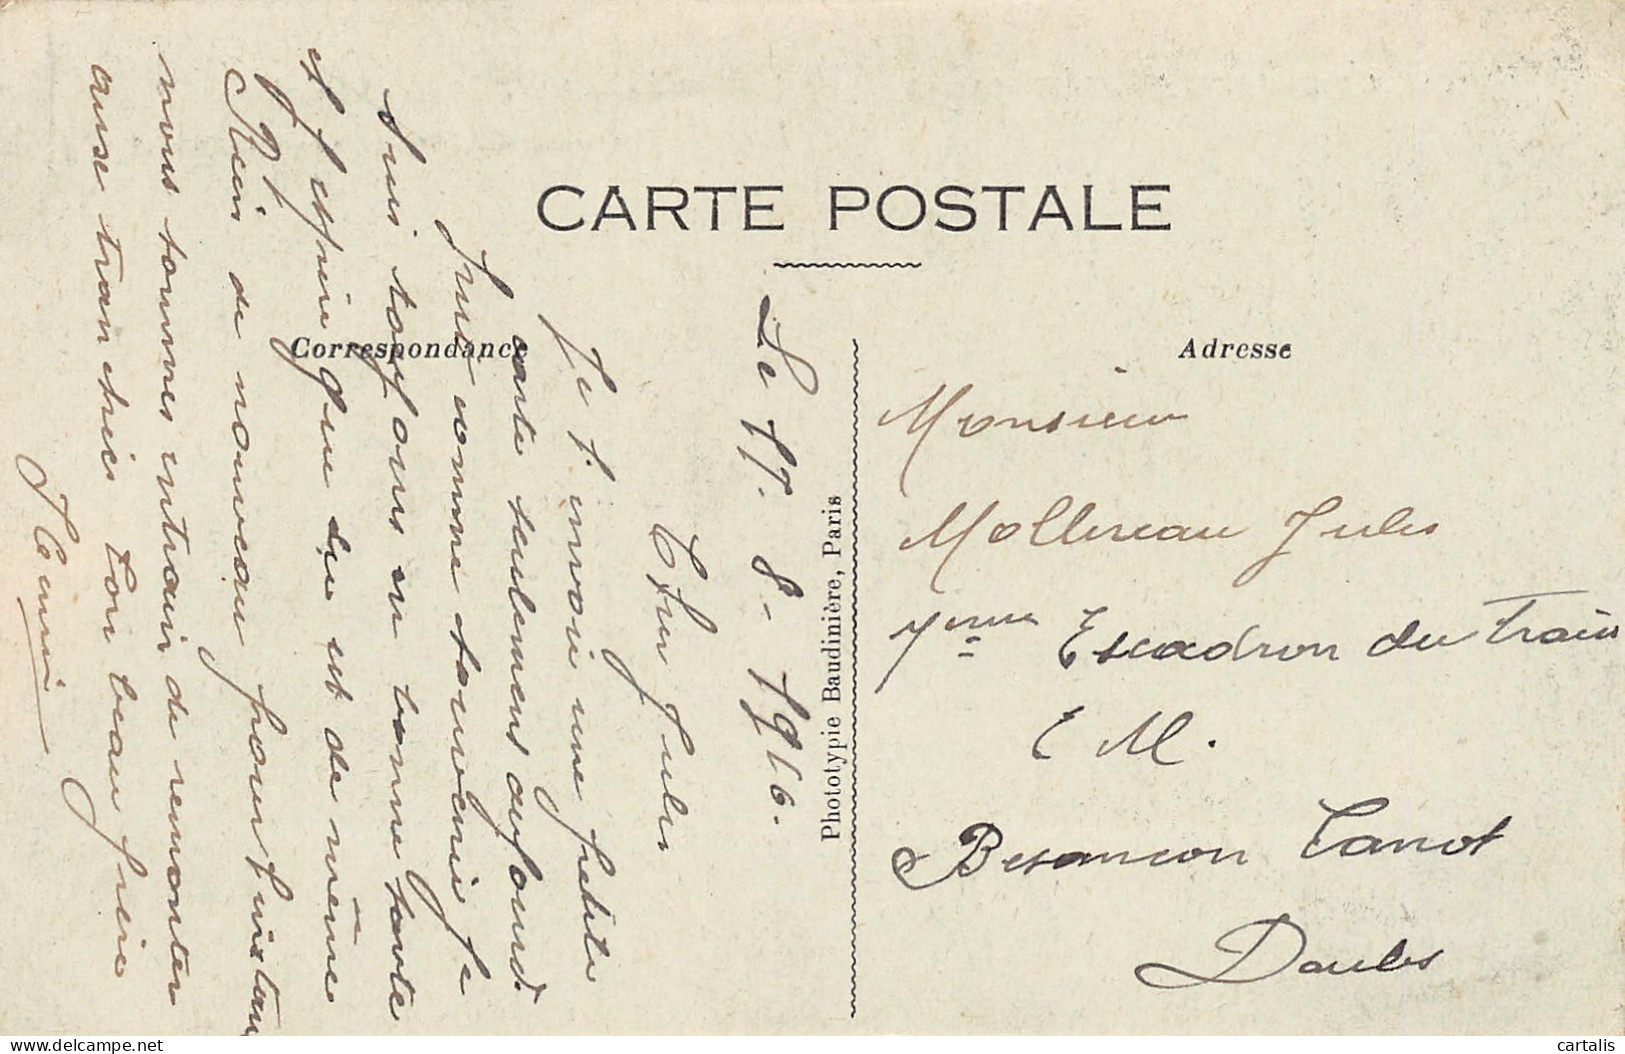 CARTE POSTALE
Correspondance
Adresse
Le 17. 8- 1916.
Cher Jules
Je t. invoie une petite
carte seulemens aujourd.
hui comme souvenir je
suis toujours en bonne sante
et espère que du est de même
Rien de nouveau pour
nous sommes entrain de remonter
ause tranchées ton beau frère
Henri
Monsieur
Mollereau Jules
7eme Escadron du Train
E M.
Besancon Canot
Doubs
Phototypie Baudinière, Paris
delcampe.net
cartalis